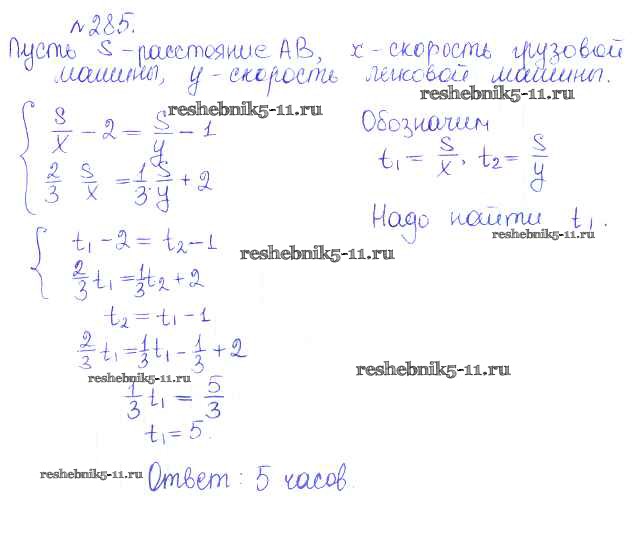 №285.
Пусть S - расстояние AB, x - скорость грузовой
машины, y - скорость легковой машины.
reshebnik5-11.ru
reshebnik5-11.ru
S/x - 2 = S/y - 1
Обозначим
2/3 S/x = 1/3 · S/y + 2
t₁ = S/x, t₂ = S/y
Надо найти t₁.
reshebnik5-11.ru
t₁ - 2 = t₂ - 1
reshebnik5-11.ru
2/3 t₁ = 1/3 t₂ + 2
t₂ = t₁ - 1
2/3 t₁ = 1/3 t₁ - 1/3 + 2
reshebnik5-11.ru
reshebnik5-11.ru
1/3 t₁ = 5/3
t₁ = 5.
reshebnik5-11.ru
Ответ: 5 часов.